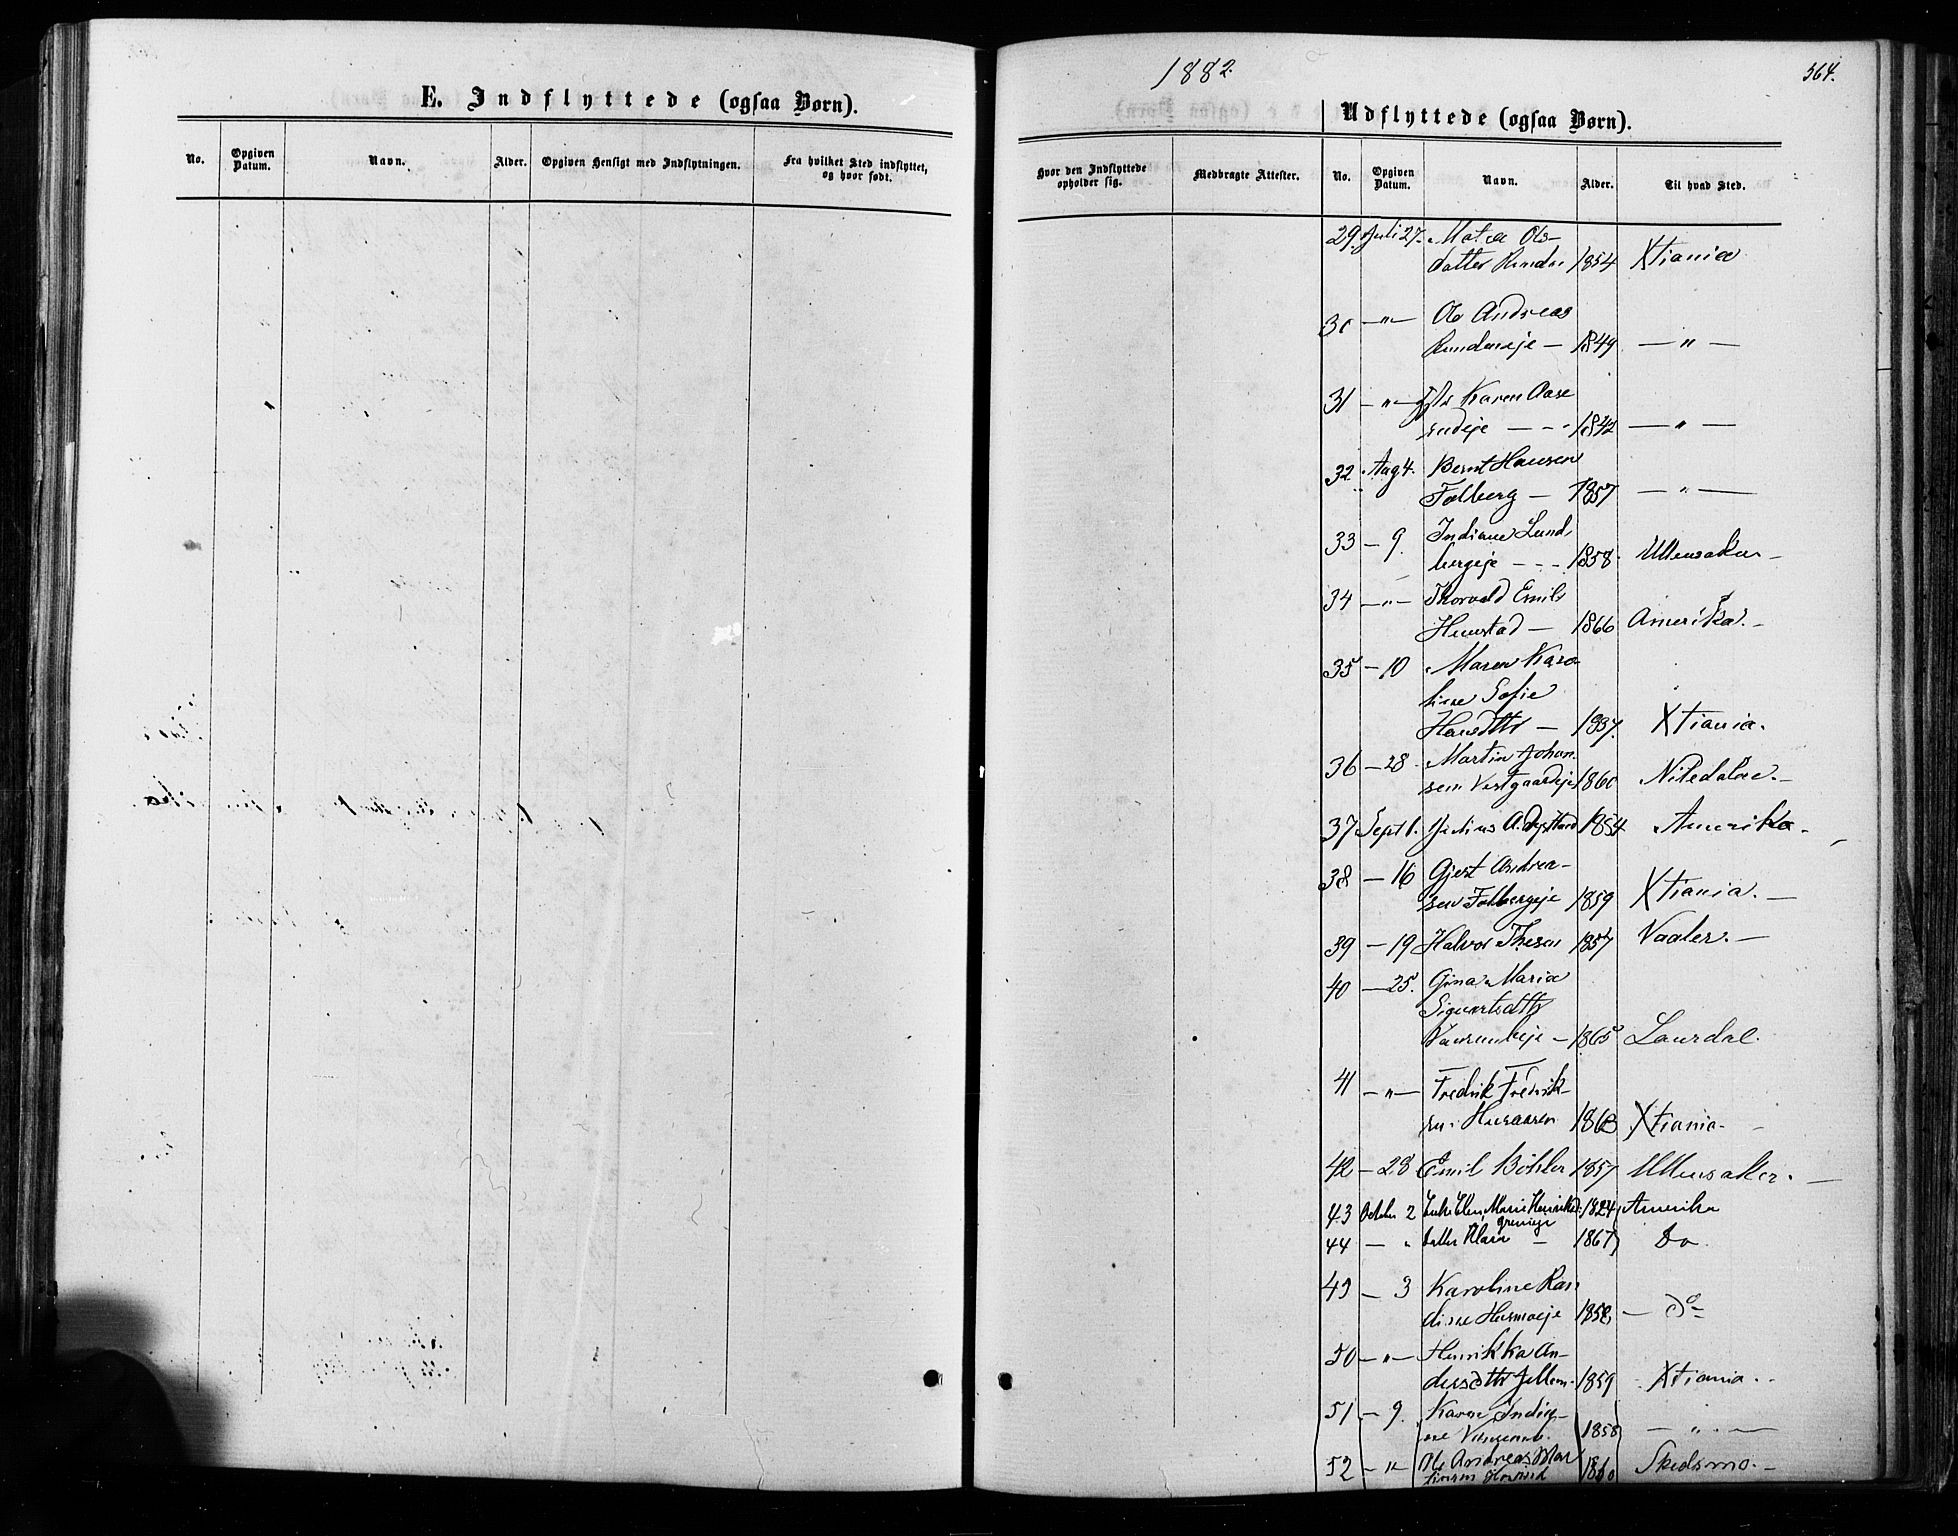 E. Indflyttede (ogsaa Børn).
No. Opgiven Datum. Navn. Alder. Opgiven Hensigt med Indflytningen. Fra hvilket Sted indflyttet, og hvor født.
1882.
364.
Udflyttede (ogsaa Børn).
Hvor den Indflyttede opholder sig. Medbragte Attester. No. Opgiven Datum. Navn. Alder. Til hvad Sted.
29. Juli 27. Matea Ols-
datter 1854 Xtiania
30 — " — Ole Andreas
1849 — " —
31 — " — Karen Aase
rudeje — - - 1842 — " —
32 Aug 4. Bernt Hansen
Folberg — 1857 — " —
33 — 9. Indiane Lund
bergeje - - - 1858. Ullensaker —
34 — " — Thorvald Emil
— 1866 Amerika. —
35 — 10 Maren Karo
line Sofie
Hansdtr — 1837. Xtiania.
36 — 28. Martin Johan
sen Vestgaardeje 1860 Nitedalen. —
37 Sept 1. Julius A. 1854 Amerika.
38 — 16 Gjert Andrea-
sen Folbergeje 1859 Xtiania. —
39 — 19 Halvor 1857 Vaaler. —
40 — 25. Gina Maria
Sigvartsdtr
— 1865 Laurdal.
41 — " — Fredrik Fredrik-
sen 1863 Xtiania.
42 — 28 Emil Böhler 1857 Ullensaker. —
43 October 2 Enke Elen Marie 1824 Amerika
44 — " datter — 1867 Do.
49 — 3 Karoline Ran
dine 1858 — Do
50 — " — Henrikka An-
dersdtr 1859 Xtiania.
51 — 9. Karen Indi-
ane 1858 — " —
52 — " — Ol. Andreas Mar
tinsen 1860 Skedsmo. —